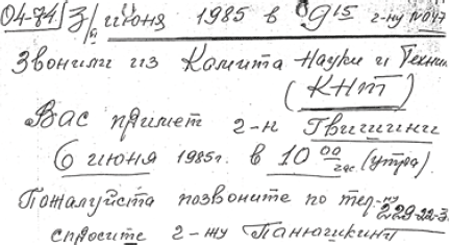 04-84/ 3/ июня 1985 в 9 15 г-ну
Звонили из Комита Науки и Техни
(КНТ)
Вас примет г-н Гвишиани
6 июня 1985г. в 10 00 час (утра).
Пожалуйста позвоните по тел-ну 229-22-3
спросите г-жу